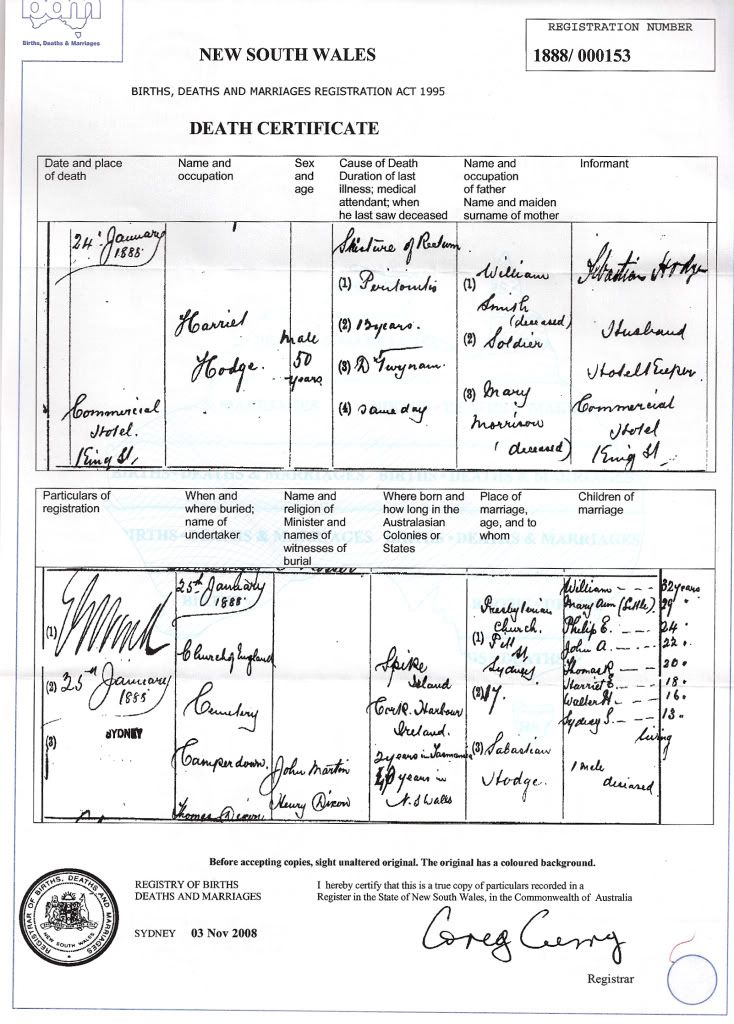 bdm
Births, Deaths & Marriages
REGISTRATION NUMBER
1888/ 000153
NEW SOUTH WALES
BIRTHS, DEATHS AND MARRIAGES REGISTRATION ACT 1995
DEATH CERTIFICATE
Date and place
of death
Name and
occupation
Sex
and
age
Cause of Death
Duration of last
illness; medical
attendant; when
he last saw deceased
Name and
occupation
of father
Name and maiden
surname of mother
Informant
24th January
1888
Commercial
Hotel.
King St.
Harriet
Hodge.
male
50
years
Stricture of Rectum
(1) Peritonitis
(2) 13 years.
(3) D Twynam.
(4) same day
(1) William
Smith
(deceased)
(2) Soldier
(3) Mary
Morrison
(deceased)
Sebastian Hodge
Husband
Hotel Keeper.
Commercial
Hotel
King St.
Particulars of
registration
When and
where buried;
name of
undertaker
Name and
religion of
Minister and
names of
witnesses of
burial
Where born and
how long in the
Australasian
Colonies or
States
Place of
marriage,
age, and to
whom
Children of
marriage
(1)
(2) 25th January
1888
(3) SYDNEY
25th January
1888
Church of England
Cemetery
Camperdown
Thomas Dixon
John Martin
Henry Dixon
Spike
Island
Cork Harbour
Ireland.
2 years in Tasmania
years in
N. S Wales
Presbyterian
Church.
(1) Pitt
St
Sydney
(2) 17.
(3) Sabastian
Hodge.
William 32 years
Mary Ann (Little) 29 "
Philip E. 24 "
John A. 22 "
Thomas R. 20 "
Harriet E. 18 "
Walter H. 16 "
Sydney S. 13 "
living
1 male
deceased
Before accepting copies, sight unaltered original. The original has a coloured background.
REGISTRAR OF BIRTHS, DEATHS AND MARRIAGES
NEW SOUTH WALES
REGISTRY OF BIRTHS
DEATHS AND MARRIAGES
SYDNEY 03 Nov 2008
I hereby certify that this is a true copy of particulars recorded in a
Register in the State of New South Wales, in the Commonwealth of Australia
Greg Curry
Registrar